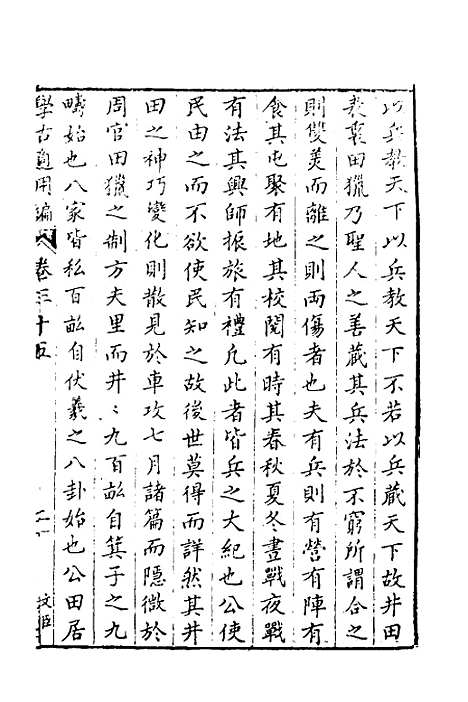 以兵教天下以兵教天下不若以兵藏天下故井田
衣裳田獵乃聖人之善藏其兵法於不窮所謂合之
則雙美而離之則兩傷者也夫有兵則有營有陣有
食其屯聚有地其校閱有時其春秋夏冬晝戰夜戰
有法其興師振旅有禮凡此者皆兵之大紀也公使
民由之而不欲使民知之故後世莫得而詳然其井
田之神巧變化則散見於車攻七月諸篇而隱微於
周官田獵之制方夫里而井〻九百畝自箕子之九
疇始也八家皆私百畝自伏羲之八卦始也公田居
學古適用編 卷三十五